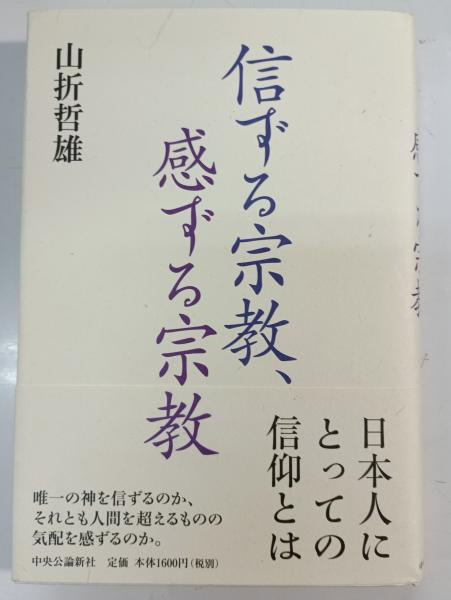 信ずる宗教、
感ずる宗教
山折哲雄
日本人に
とっての
信仰とは
唯一の神を信ずるのか、
それとも人間を超えるものの
気配を感ずるのか。
中央公論新社 定価 本体1600円(税別)